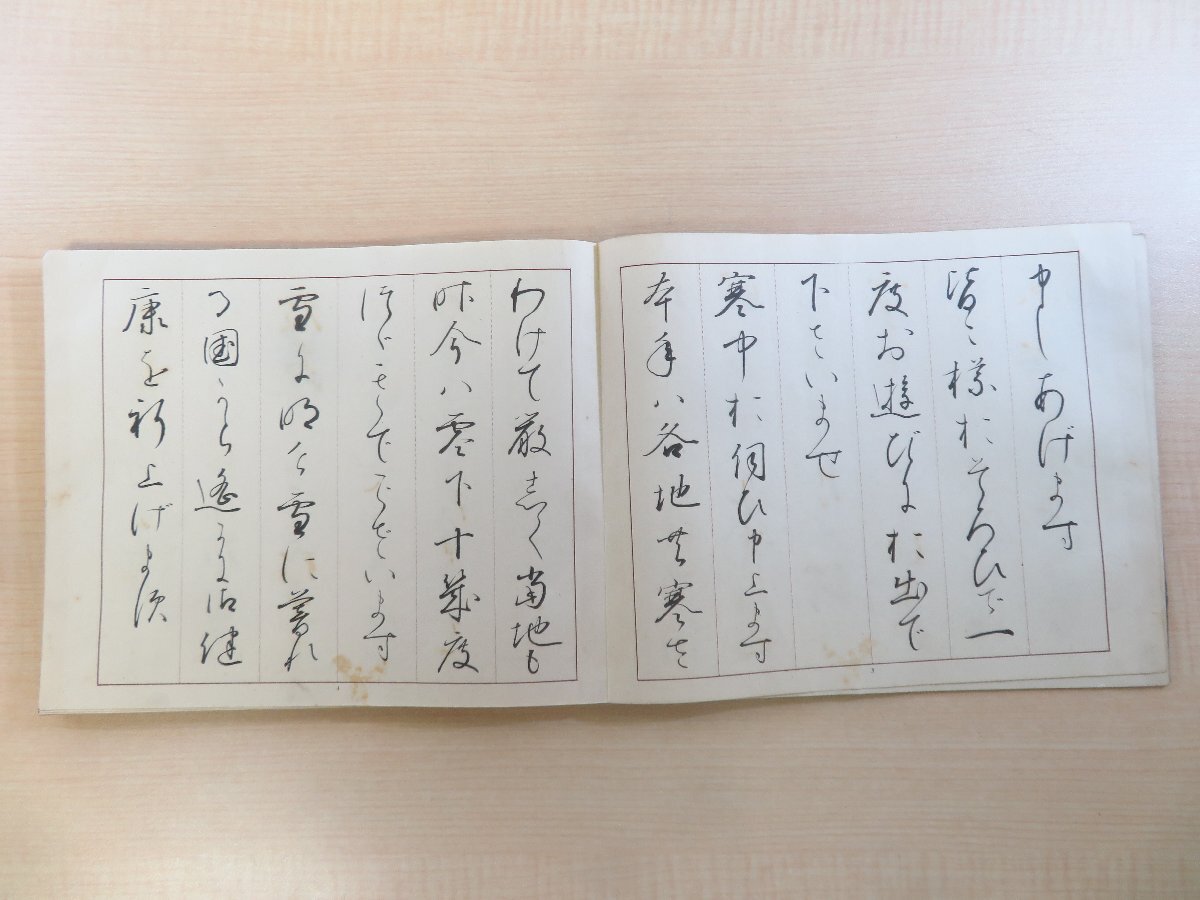 申しあげます
皆々様おそろひで一
度お遊びにお出で
下さいませ
寒中お伺ひ申上ます
本年ハ各地共寒さ
3
わけて厳しく当地も
昨今ハ零下十幾度
つゞきでございます
雪に明け雪に暮れ
る国から遙に御健
康を祈上げます
4